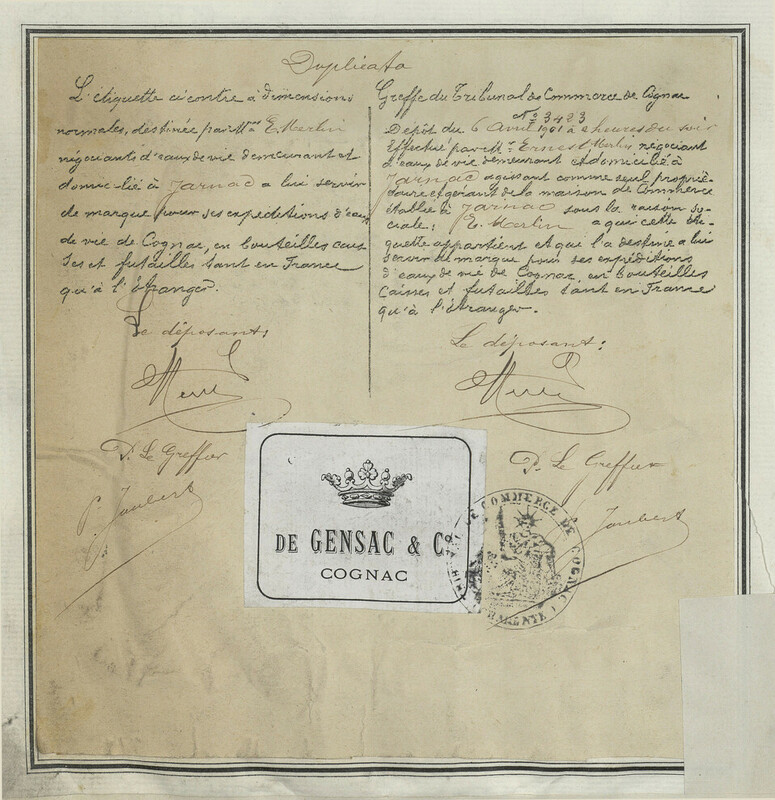 Duplicata
L'étiquette ci contre à dimensions
normales, destinée par Mr E. Merlin
négociants d'eaux de vie demeurant et
domicilié à Jarnac a lui servir
de marque pour ses expéditions d'eaux
de vie de Cognac, en bouteilles cais
ses et futailles tant en France
qu'à l'étranger.
Le déposant:
P. Le Greffier
P. Joubert
Greffe du Tribunal de Commerce de Cognac
No 3423
Dépôt du 6 Avril 1901 à heures du soir
Effectué par Mr Ernest Merlin négociant
d'eaux de vie demeurant et domicilié à
Jarnac agissant comme seul proprié-
taire et gérant de la maison de Commerce
établie à Jarnac sous la raison so-
ciale: E. Merlin a qui cette éti-
quette appartient et qui l'a destiné a lui
servir de marque pour ses expéditions
d'eaux de vie de Cognac, en bouteilles
Caisses et futailles tant en France
qu'à l'étranger.
Le déposant:
P. Le Greffier
Joubert
DE GENSAC & Co.
COGNAC
TRIBUNAL DE COMMERCE DE COGNAC
CHARENTE